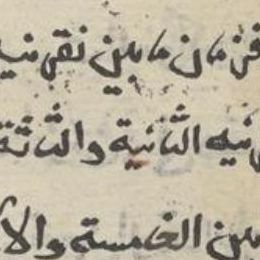 زمان ما بين نقر
ـيه الثانية والثالثة
بين الخامسة والا